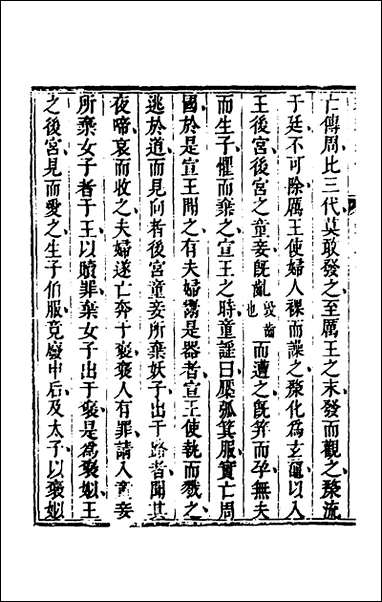 亡傳周比三代莫敢發之至厲王之末發而觀之漦流
于廷不可除厲王使婦人裸而譟之漦化為玄黿以入
王後宮後宮之童妾旣齓毀齒也而遭之旣笄而孕無夫
而生子懼而棄之宣王之時童謡曰檿弧箕服實亡周
國於是宣王聞之有夫婦鬻是器者宣王使執而戮之
逃於道而見向者後宮童妾所棄妖子出于路者聞其
夜啼哀而收之夫婦遂亡奔于襃襃人有罪請入童妾
所棄女子者于王以贖罪棄女子出于襃是為襃姒王
之後宮見而愛之生子伯服竟廢申后及太子以襃姒